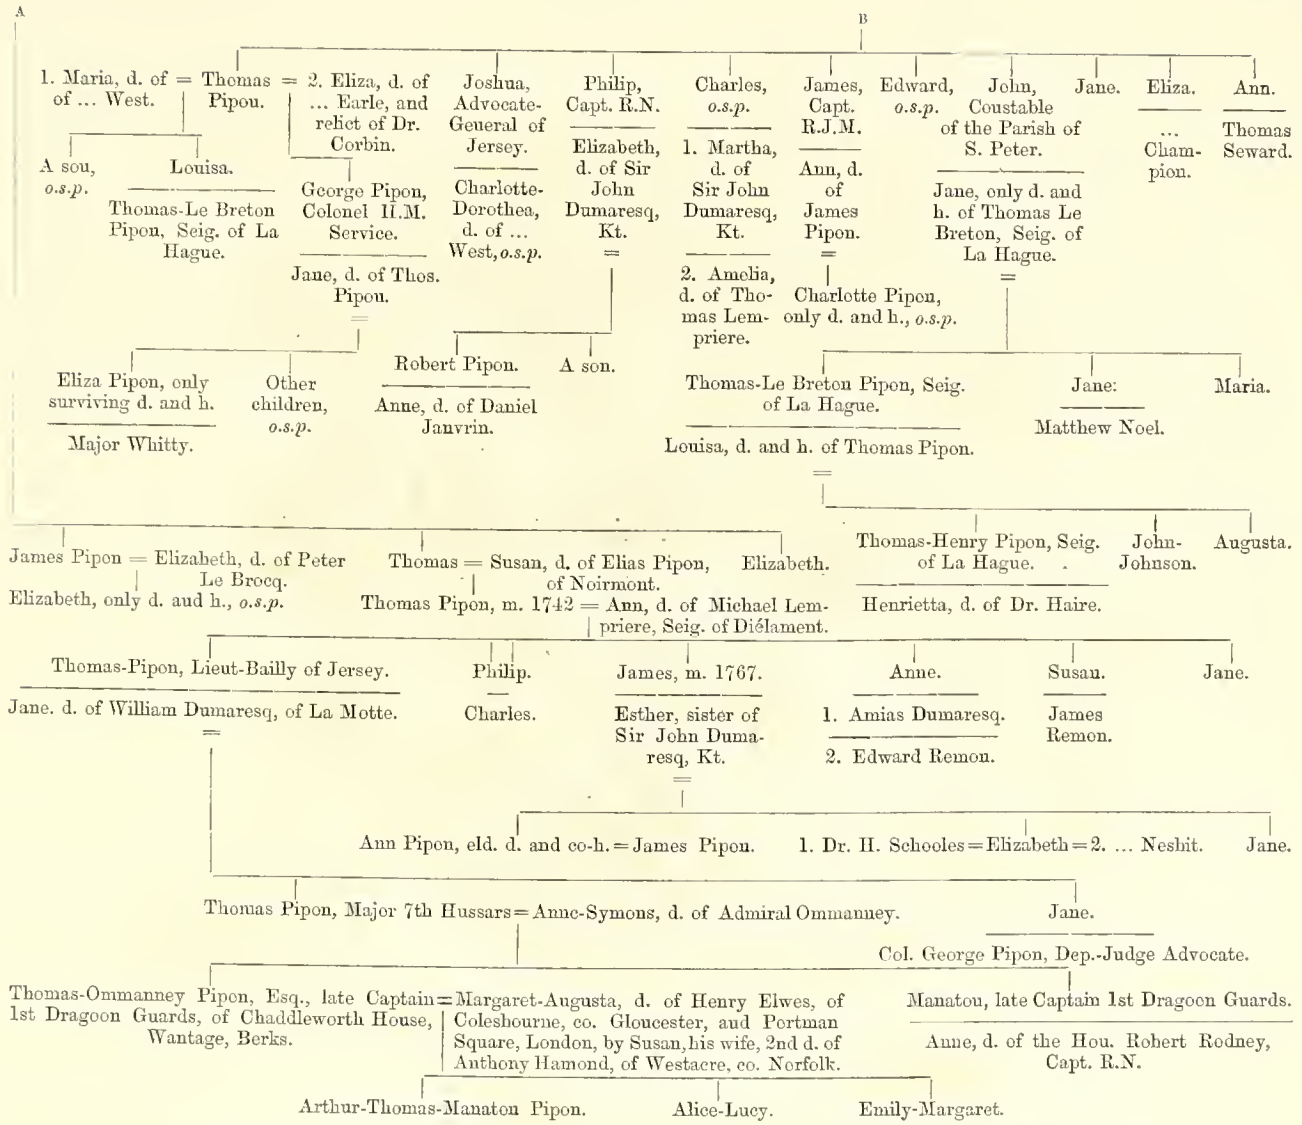 A
B
1. Maria, d. of = Thomas = 2. Eliza, d. of
of ... West. Pipou. ... Earle, and
relict of Dr.
Corbin.
Joshua,
Advocate-
General of
Jersey.
Charlotte-
Dorothea,
d. of ...
West, o.s.p.
Philip,
Capt. R.N.
Elizabeth,
d. of Sir
John
Dumaresq,
Kt.
=
Charles,
o.s.p.
1. Martha,
d. of
Sir John
Dumaresq,
Kt.
2. Amelia,
d. of Tho-
mas Lem-
priere.
James,
Capt.
R.J.M.
Ann, d.
of
James
Pipon.
=
Charlotte Pipon,
only d. and h., o.s.p.
Edward,
o.s.p.
John,
Constable
of the Parish of
S. Peter.
Jane, only d. and
h. of Thomas Le
Breton, Seig. of
La Hague.
=
Jane.
Eliza.
...
Cham-
pion.
Ann.
Thomas
Seward.
A son,
o.s.p.
Louisa.
Thomas-Le Breton
Pipon, Seig. of La
Hague.
George Pipon,
Colonel H.M.
Service.
Jane, d. of Thos.
Pipou.
=
Eliza Pipon, only
surviving d. and h.
Major Whitty.
Other
children,
o.s.p.
Robert Pipon.
Anne, d. of Daniel
Janvrin.
A son.
Thomas-Le Breton Pipon, Seig.
of La Hague.
Louisa, d. and h. of Thomas Pipon.
=
Jane:
Matthew Noel.
Maria.
James Pipon = Elizabeth, d. of Peter
Le Brocq.
Elizabeth, only d. and h., o.s.p.
Thomas = Susan, d. of Elias Pipon,
of Noirmont.
Elizabeth.
Thomas Pipon, m. 1742 = Ann, d. of Michael Lem-
priere, Seig. of Diélament.
Thomas-Henry Pipon, Seig.
of La Hague.
Henrietta, d. of Dr. Haire.
John-
Johnson.
Augusta.
Thomas-Pipon, Lieut-Bailly of Jersey.
Jane. d. of William Dumaresq, of La Motte.
=
Philip.
Charles.
James, m. 1767.
Esther, sister of
Sir John Duma-
resq, Kt.
=
Anne.
1. Amias Dumaresq.
2. Edward Remon.
Susan.
James
Remon.
Jane.
Ann Pipon, eld. d. and co-h. = James Pipon.
1. Dr. H. Schooles = Elizabeth = 2. ... Nesbit.
Jane.
Thomas Pipon, Major 7th Hussars = Anne-Symons, d. of Admiral Ommanney.
Jane.
Col. George Pipon, Dep.-Judge Advocate.
Thomas-Ommanney Pipon, Esq., late Captain = Margaret-Augusta, d. of Henry Elwes, of
1st Dragoon Guards, of Chaddleworth House, Colesbourne, co. Gloucester, and Portman
Wantage, Berks. Square, London, by Susan, his wife, 2nd d. of
Anthony Hamond, of Westacre, co. Norfolk.
Manatou, late Captain 1st Dragoon Guards.
Anne, d. of the Hou. Robert Rodney,
Capt. R.N.
Arthur-Thomas-Manaton Pipon.
Alice-Lucy.
Emily-Margaret.